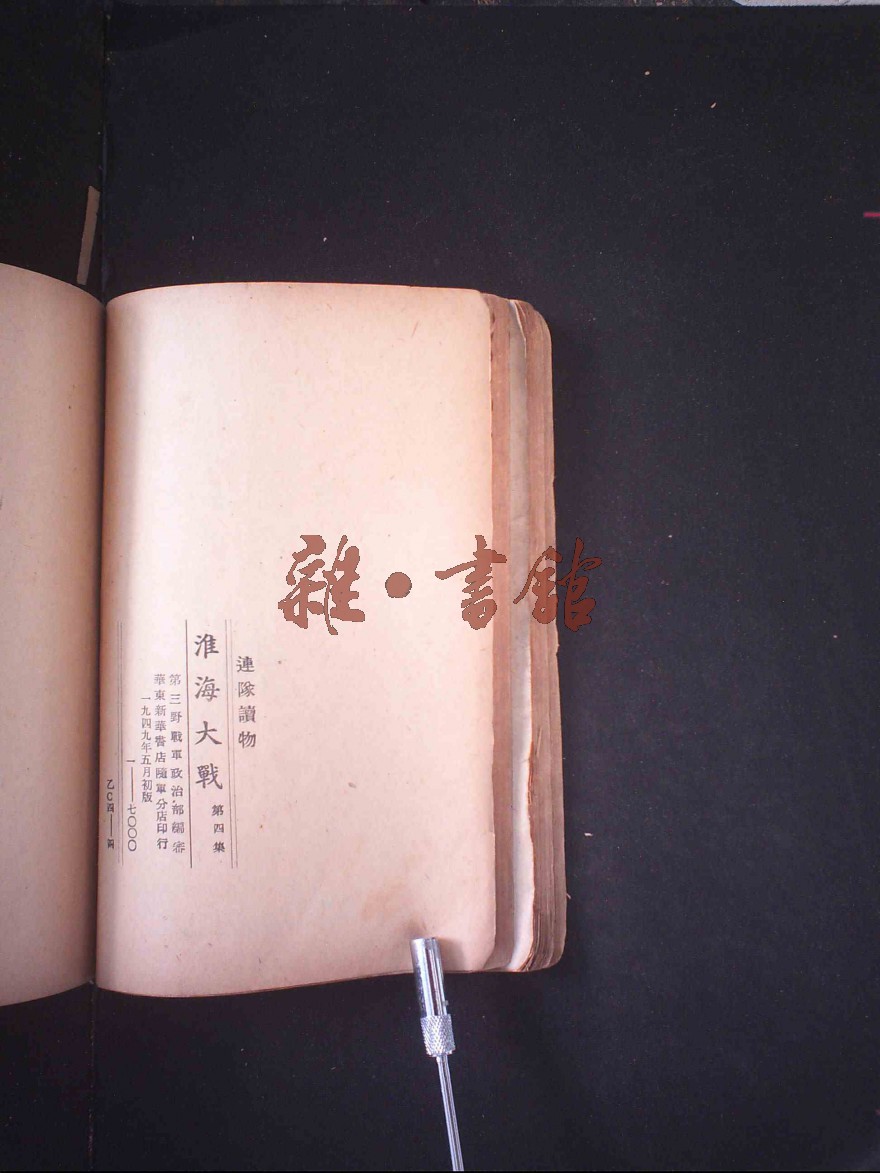 雜·書館
連隊讀物
淮海大戰 第四集
第三野戰軍政治部編審
華東新華書店隨軍分店印行
一九四九年五月初版
一——七〇〇〇
乙〇四——四